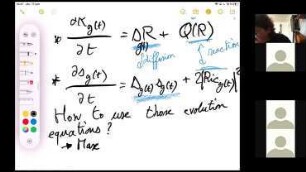 * ∂R_g(t) / ∂t = ΔR + Q(R)
g(t) diffusion reaction
* ∂s_g(t) / ∂t = Δ_g(t) s_g(t) + 2|Ric_g(t)|²
How to use those evolution
equations?
→ Max